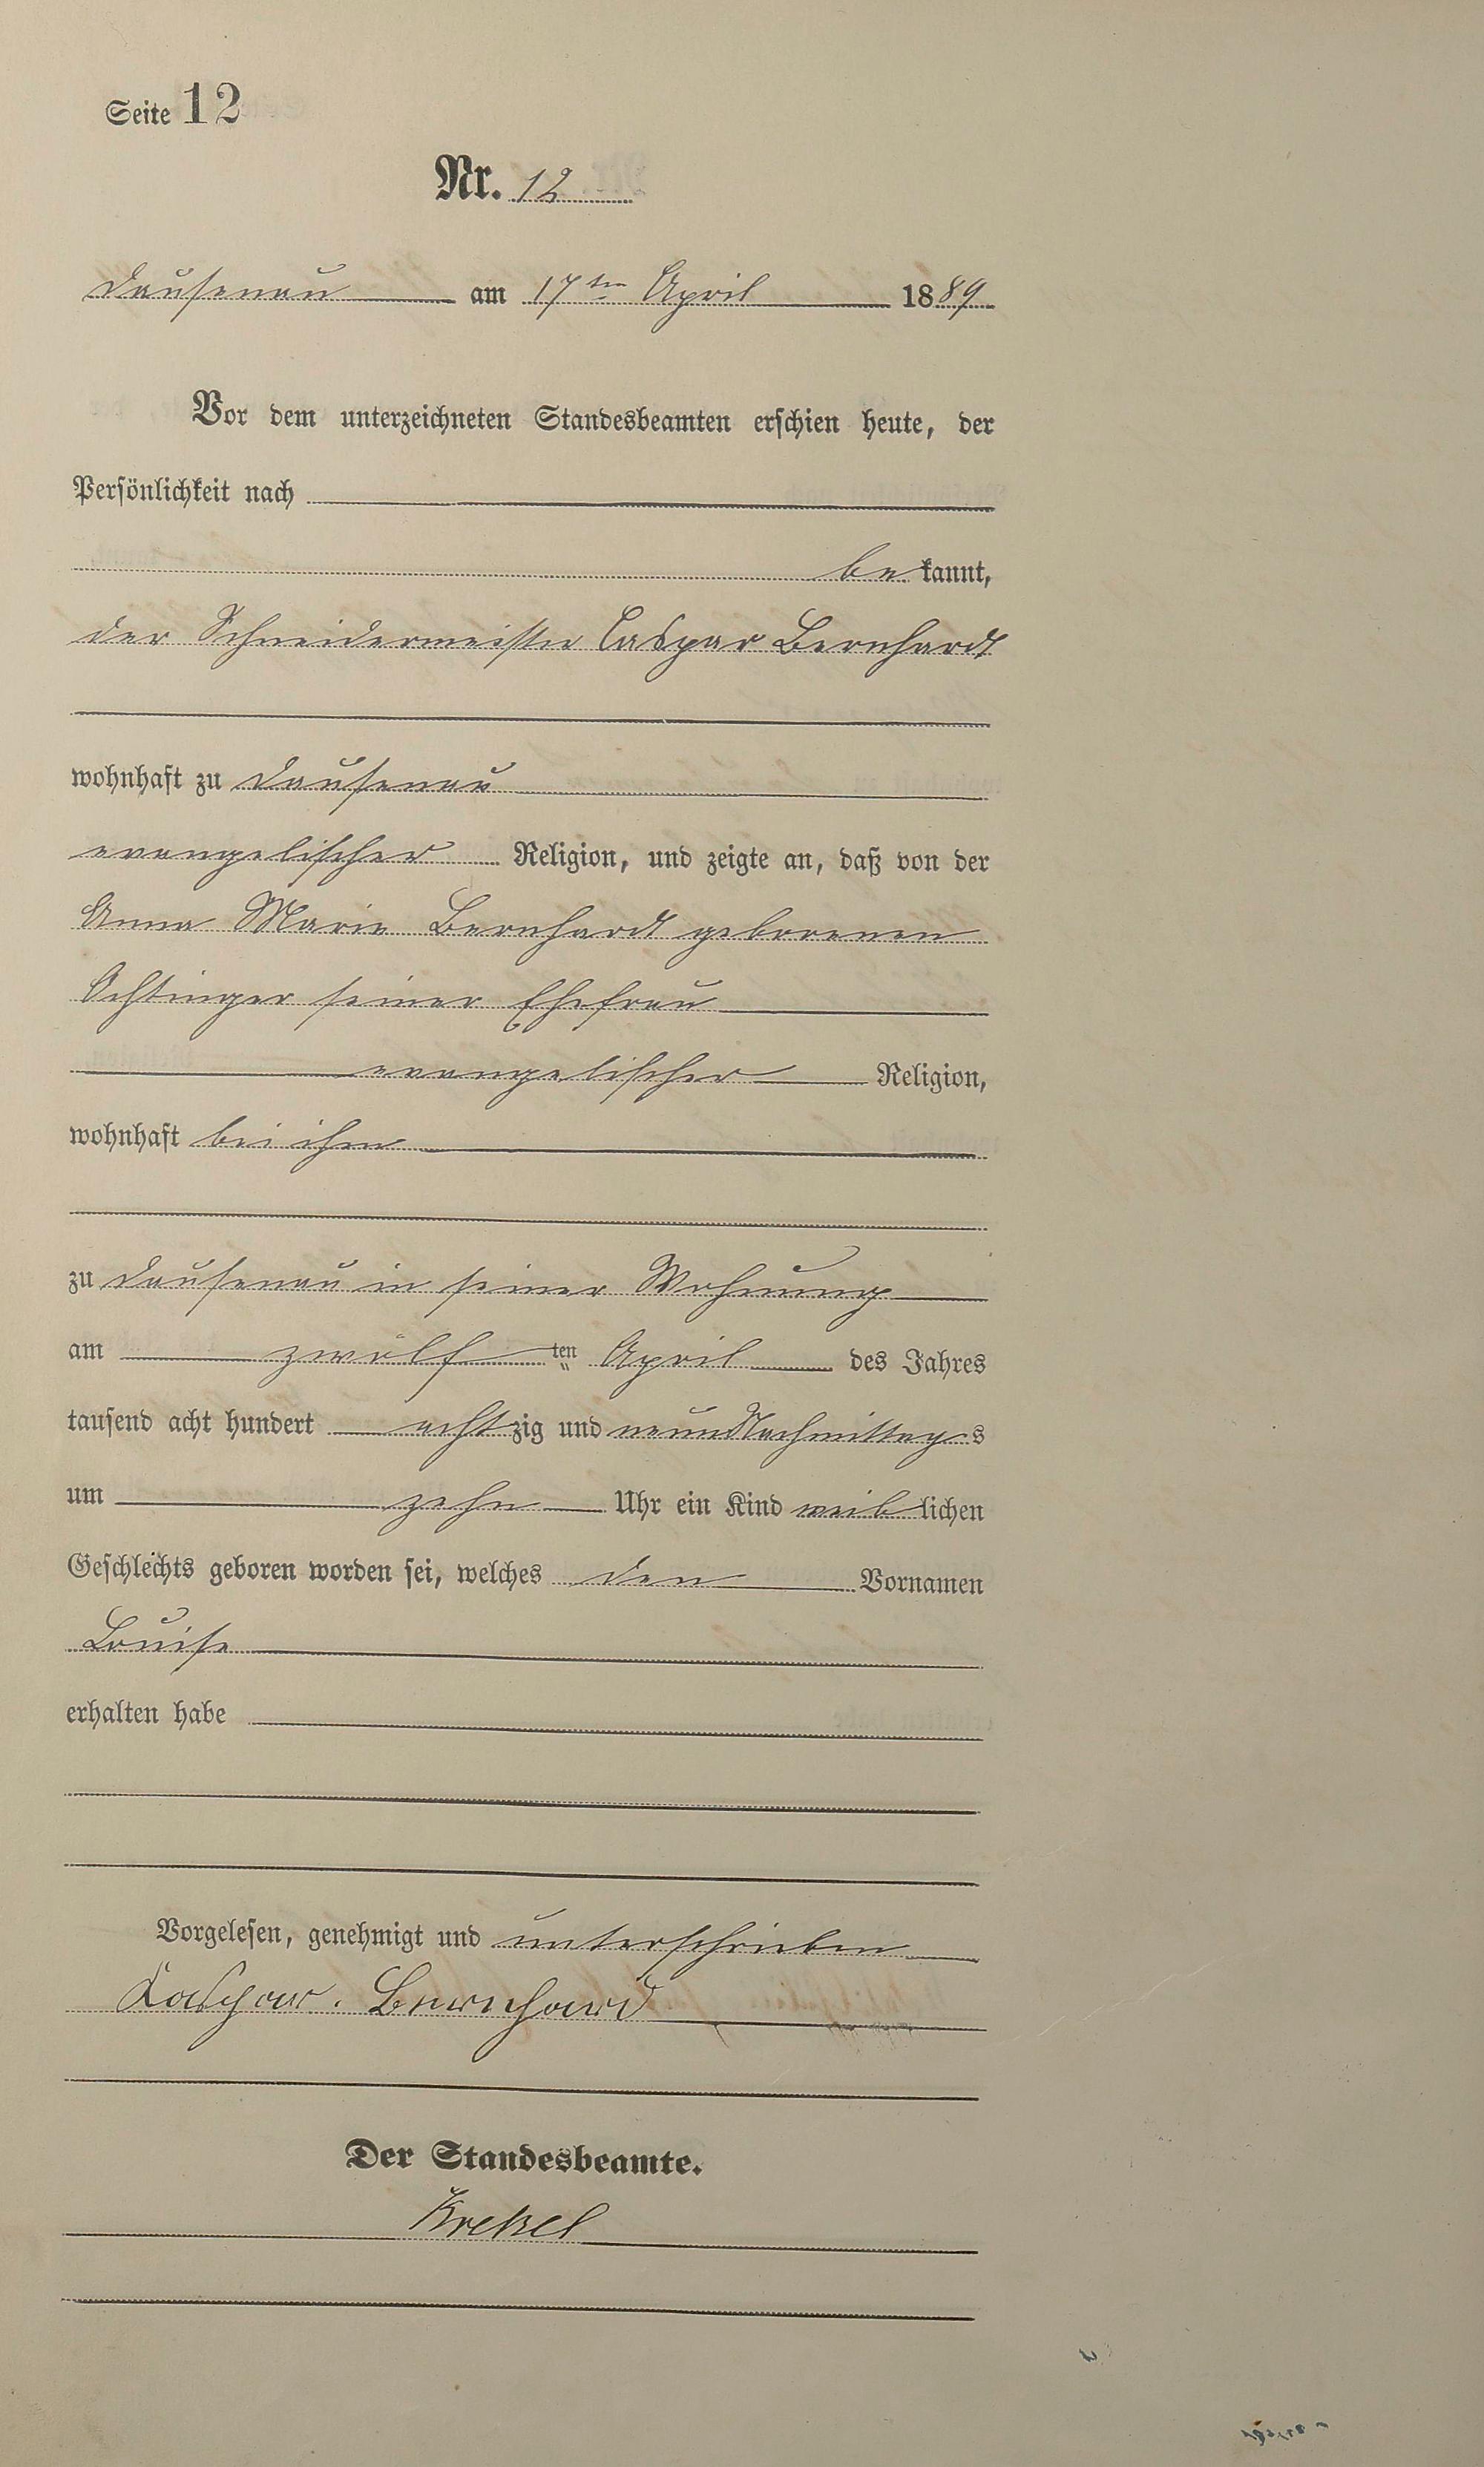 Seite 12
Nr. 12
Dausenau am 17ten April 1889
Vor dem unterzeichneten Standesbeamten erschien heute, der
Persönlichkeit nach
be kannt,
der Schneidermeister Caspar Bernhardt
wohnhaft zu Dausenau
evangelischer Religion, und zeigte an, daß von der
Anna Marie Bernhardt geborenen
Ochtinger seiner Ehefrau
evangelischer Religion,
wohnhaft bei ihm
zu Dausenau in seiner Wohnung
am zwölf ten April des Jahres
tausend acht hundert achtzig und neun Nachmittags
um zehn Uhr ein Kind weiblichen
Geschlechts geboren worden sei, welches den Vornamen
Louise
erhalten habe
Vorgelesen, genehmigt und unterschrieben
Kaspar. Bernhard
Der Standesbeamte.
Krekel